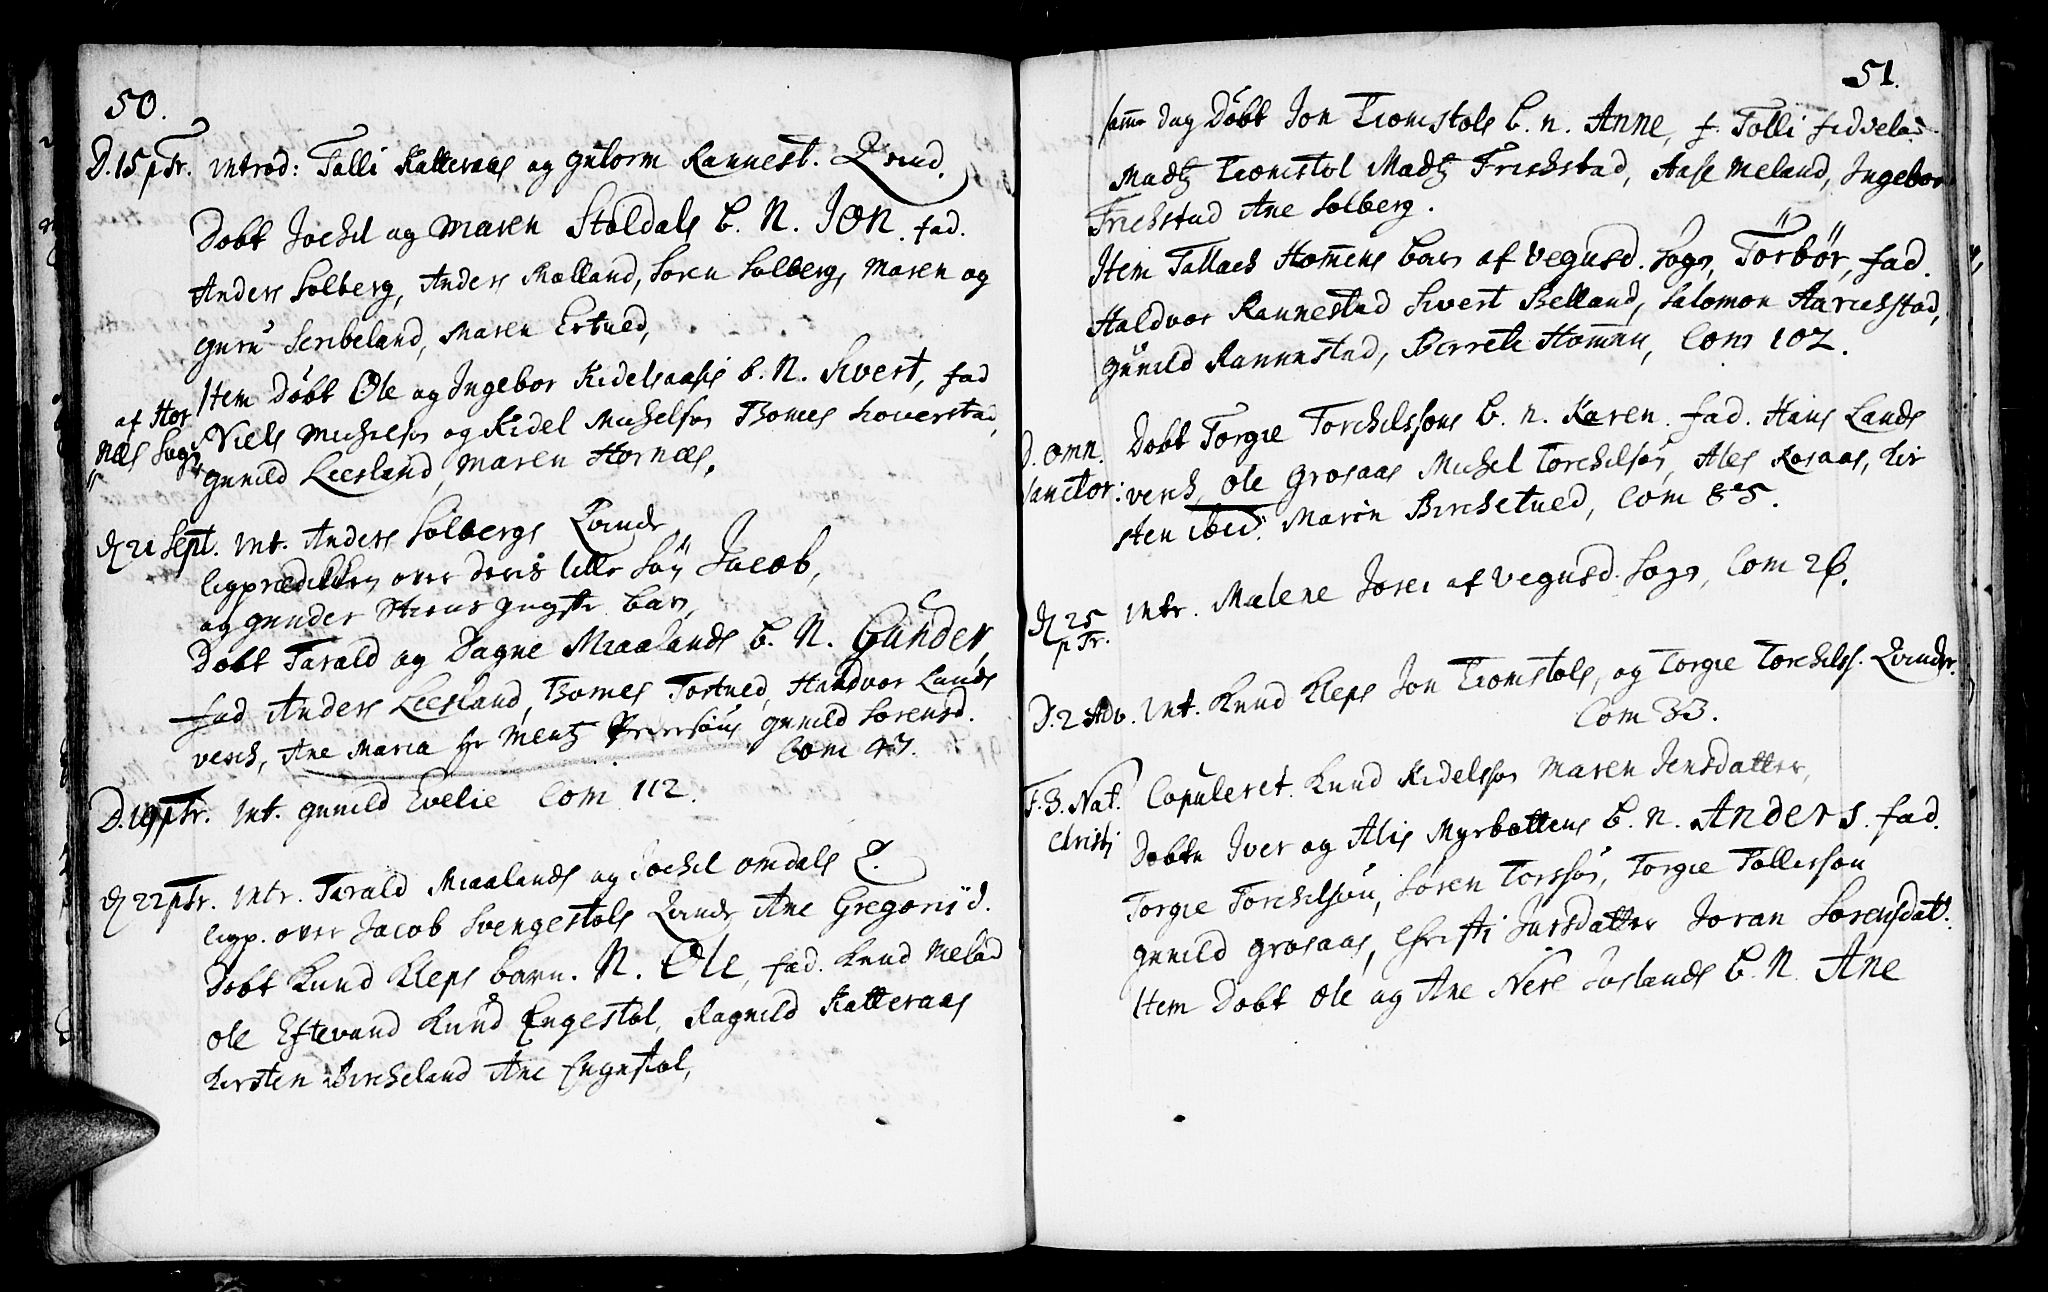 50.
D. 15 p Tr. introd: Talli Katteraas og Gutorm Rannest. Qvind.
Døbt Jochil og Maren Støldals B. N. Jon. fad.
Anders Solberg, Anders Rælland, Soren Solberg, Maren og
Guru Scribeland, Maren Ertued,
Item Døbt Ole og Ingebor Kidelsaasis b. N. Sivert, fad
af Hor
næs Sogn
Niels Michelsøn og Kidel Michelsøn Tomes Loverstad,
Gunild Leesland, Maren Hornæs,
D 21 Sept. int. Anders Solbergs Qvinde
ligprædicken over deris lille Søn Jacob,
og Gunder Stiens yngste barn,
Døbt Tarald og Dagne Miaalands B. N. Gunder,
fad Anders Leesland, Tomes Tortued, Haldvor Lands
verch, Ane Maria hr Mentz Pedersøns Gunild Sorensd.
Com 47.
D. 19 p Tr. int. Gunild Evelie Com 112.
D 22 p Tr. intr. Tarald Miaalands og Jochil Omdals Q.
ligp. over Jacob Svengestols Qvinde Ane Gregorsd.
Døbt Knud Kleps barn. N. Ole, fad. Knud Melad
Ole Eftevand Knud Engestol, Ragnild Katteraas
Kirsten Bircheland Ane Engestol,
51.
samme dag Døbt Jon Tiomstols B. n. Anne, f. Tolli
Madtz Tiomstol Madtz Frichstad, Aase Meland, Ingebor
Frichstad Ane Solberg.
Item Tallach Hommens barn af Vegusd. Sogn, Torbør, fad.
Haldvor Rannestad Sivert Belland, Salomon Aarichstad,
Gunild Rannestad, Berrete Hommen, Com 102.
D. omn.
sanctor:
Døbt Torgie Torchilssøns B. n. Karen. fad. Hans Lands
verch, Ole Grosaas Michel Torchilsøn, Ales Rosaas, Kir
sten ibid. Maren Birchetued, Com 85.
D 25
p Tr.
intr. Malene Joren af Vegusd. Sogn, Com 26.
D. 2 Adv. int. Knud Kleps Jon Tiomstols, og Torgie Torchilss. Qvinder.
Com 33.
F. 3. Nat.
Christi
Copuleret. Knud Kidelssøn Maren Jensdatter,
Døbte Iver og Alis Myrbottens B. n. Anders. fad.
Torgie Torchilsøn, Søren Torssøn, Torgie Tollerson
Gunild Grosaas, Christi Jursdatter Joran Sorensdatt.
Item Døbt Ole og Ane Nere Joslands B. N. Ane